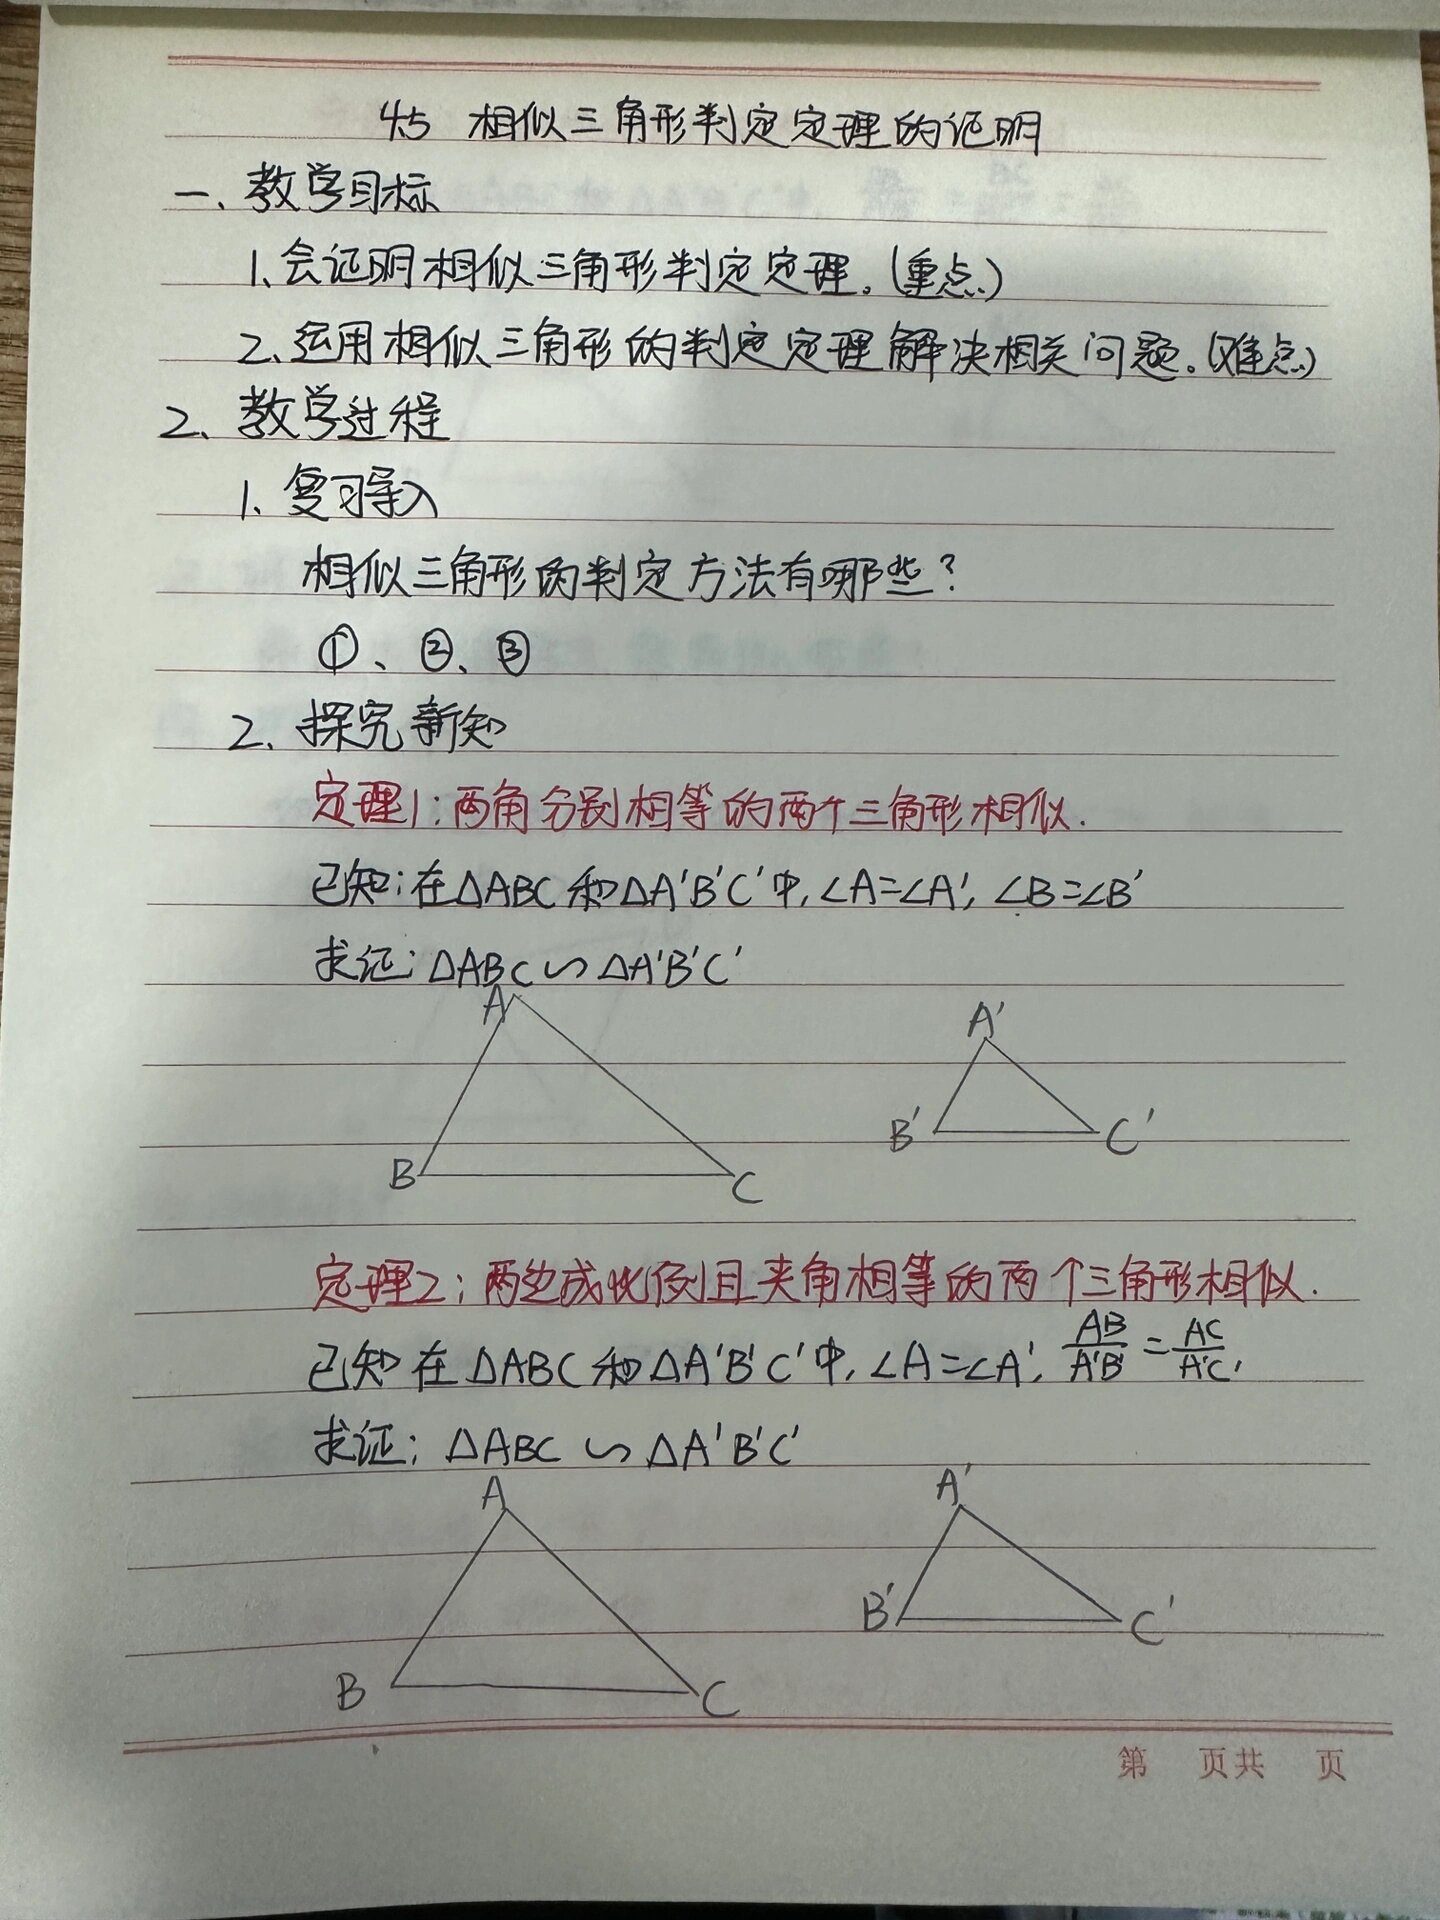 4.5 相似三角形判定定理的证明
一、教学目标
1、会证明相似三角形判定定理。(重点)
2、运用相似三角形的判定定理解决相关问题。(难点)
2、教学过程
1、复习导入
相似三角形的判定方法有哪些?
①、②、③
2、探究新知
定理1:两角分别相等的两个三角形相似.
已知:在△ABC和△A'B'C'中,∠A=∠A',∠B=∠B'
求证:△ABC∽△A'B'C'
A
A'
B'
C'
B
C
定理2:两边成比例且夹角相等的两个三角形相似.
已知 在△ABC和△A'B'C'中,∠A=∠A',AB/A'B'=AC/A'C',
求证:△ABC∽△A'B'C'
A
A'
B'
C'
B
C
第 页共 页